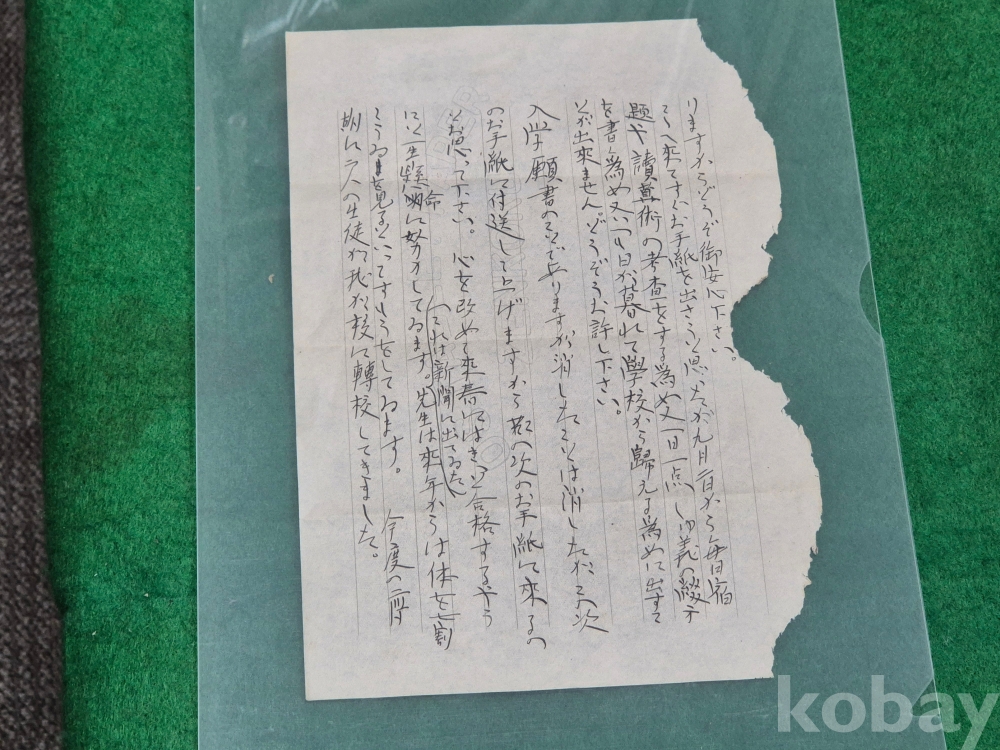 りますからどうぞ御安心下さい。
って来てすぐお手紙を出さうと思ったが九月一日から毎日宿
題や讀 術の考査をする為め又一日一点しゅ義の綴方
を書く為め又 日が暮れて學校から歸える為めに出すこ
とが出来ません。どうぞうお許し下さい。
入学願書のことで有りますが、消したことは消したが 次
のお手紙に付送して上げますから 次のお手紙に来るの
とお思って下さい。心を改めて来春にはきっと合格するやう
に一生懸命に努力してゐます。先生は来年からは休を一割
(それは新聞に出てゐた
ってさうをしてゐます。 今度の二學
期に 人の生徒が我が校に轉校してきました。
kobay